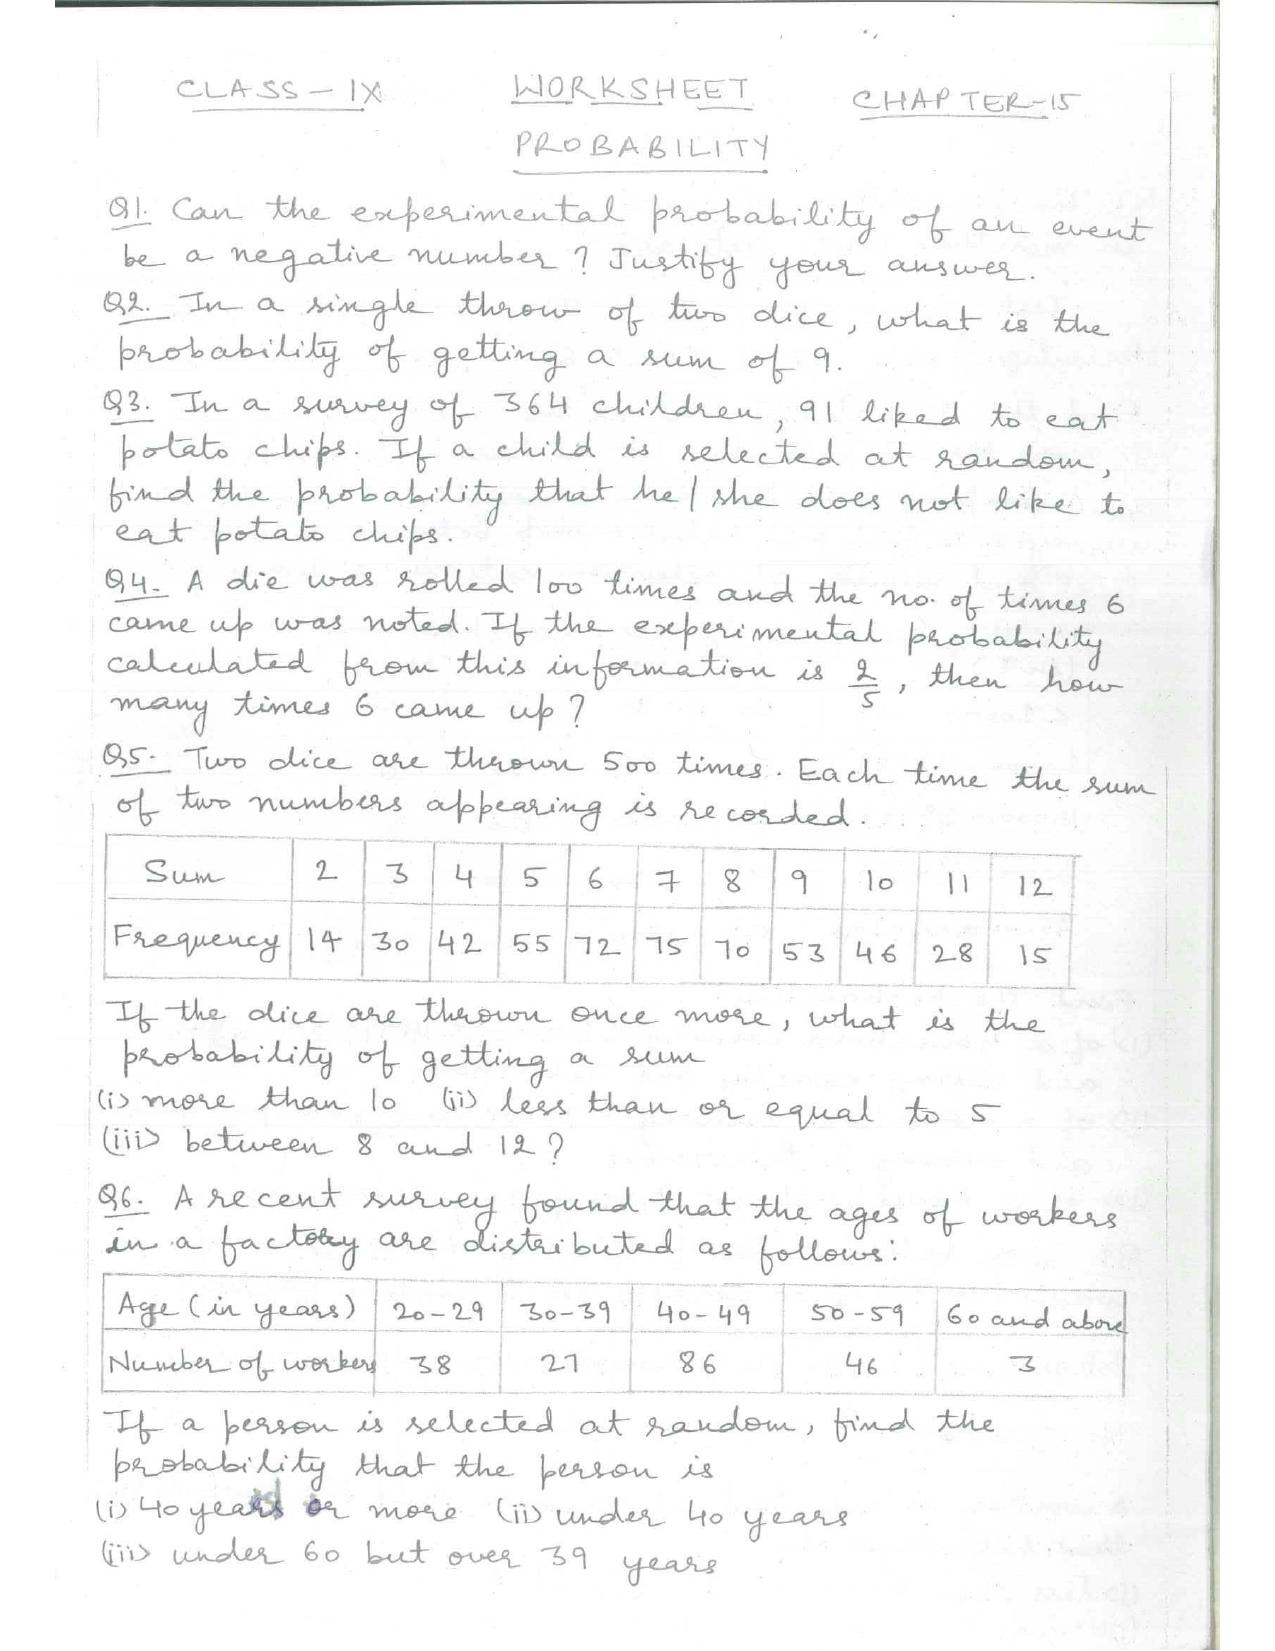 CLASS-IX WORKSHEET CHAPTER-15
PROBABILITY
Q1. Can the experimental probability of an event
be a negative number? Justify your answer.
Q2. In a single throw of two dice, what is the
probability of getting a sum of 9.
Q3. In a survey of 364 children, 91 liked to eat
potato chips. If a child is selected at random,
find the probability that he/she does not like to
eat potato chips.
Q4. A die was rolled 100 times and the no. of times 6
came up was noted. If the experimental probability
calculated from this information is 2/5, then how
many times 6 came up?
Q5. Two dice are thrown 500 times. Each time the sum
of two numbers appearing is recorded.
Sum 2 3 4 5 6 7 8 9 10 11 12
Frequency 14 30 42 55 72 75 70 53 46 28 15
If the dice are thrown once more, what is the
probability of getting a sum
(i) more than 10 (ii) less than or equal to 5
(iii) between 8 and 12?
Q6. A recent survey found that the ages of workers
in a factory are distributed as follows:
Age (in years) 20-29 30-39 40-49 50-59 60 and above
Number of workers 38 27 86 46 3
If a person is selected at random, find the
probability that the person is
(i) 40 years or more (ii) under 40 years
(iii) under 60 but over 39 years